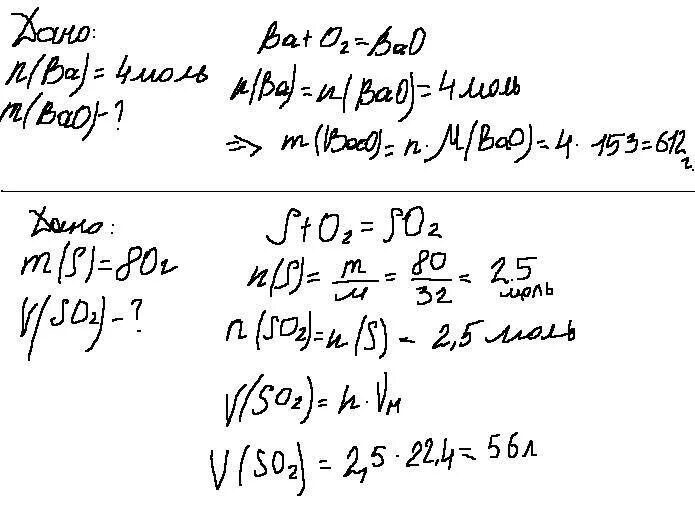 Дано:
n(Ba) = 4 моль
m(BaO) - ?
Ba + O₂ = BaO
n(Ba) = n(BaO) = 4 моль
=> m(BaO) = n · M(BaO) = 4 · 153 = 612 г.
Дано:
m(S) = 80г
V(SO₂) - ?
S + O₂ = SO₂
n(S) = m/м = 80/32 = 2.5 моль
n(SO₂) = n(S) - 2,5 моль
V(SO₂) = n · Vм
V(SO₂) = 2,5 · 22,4 = 56л